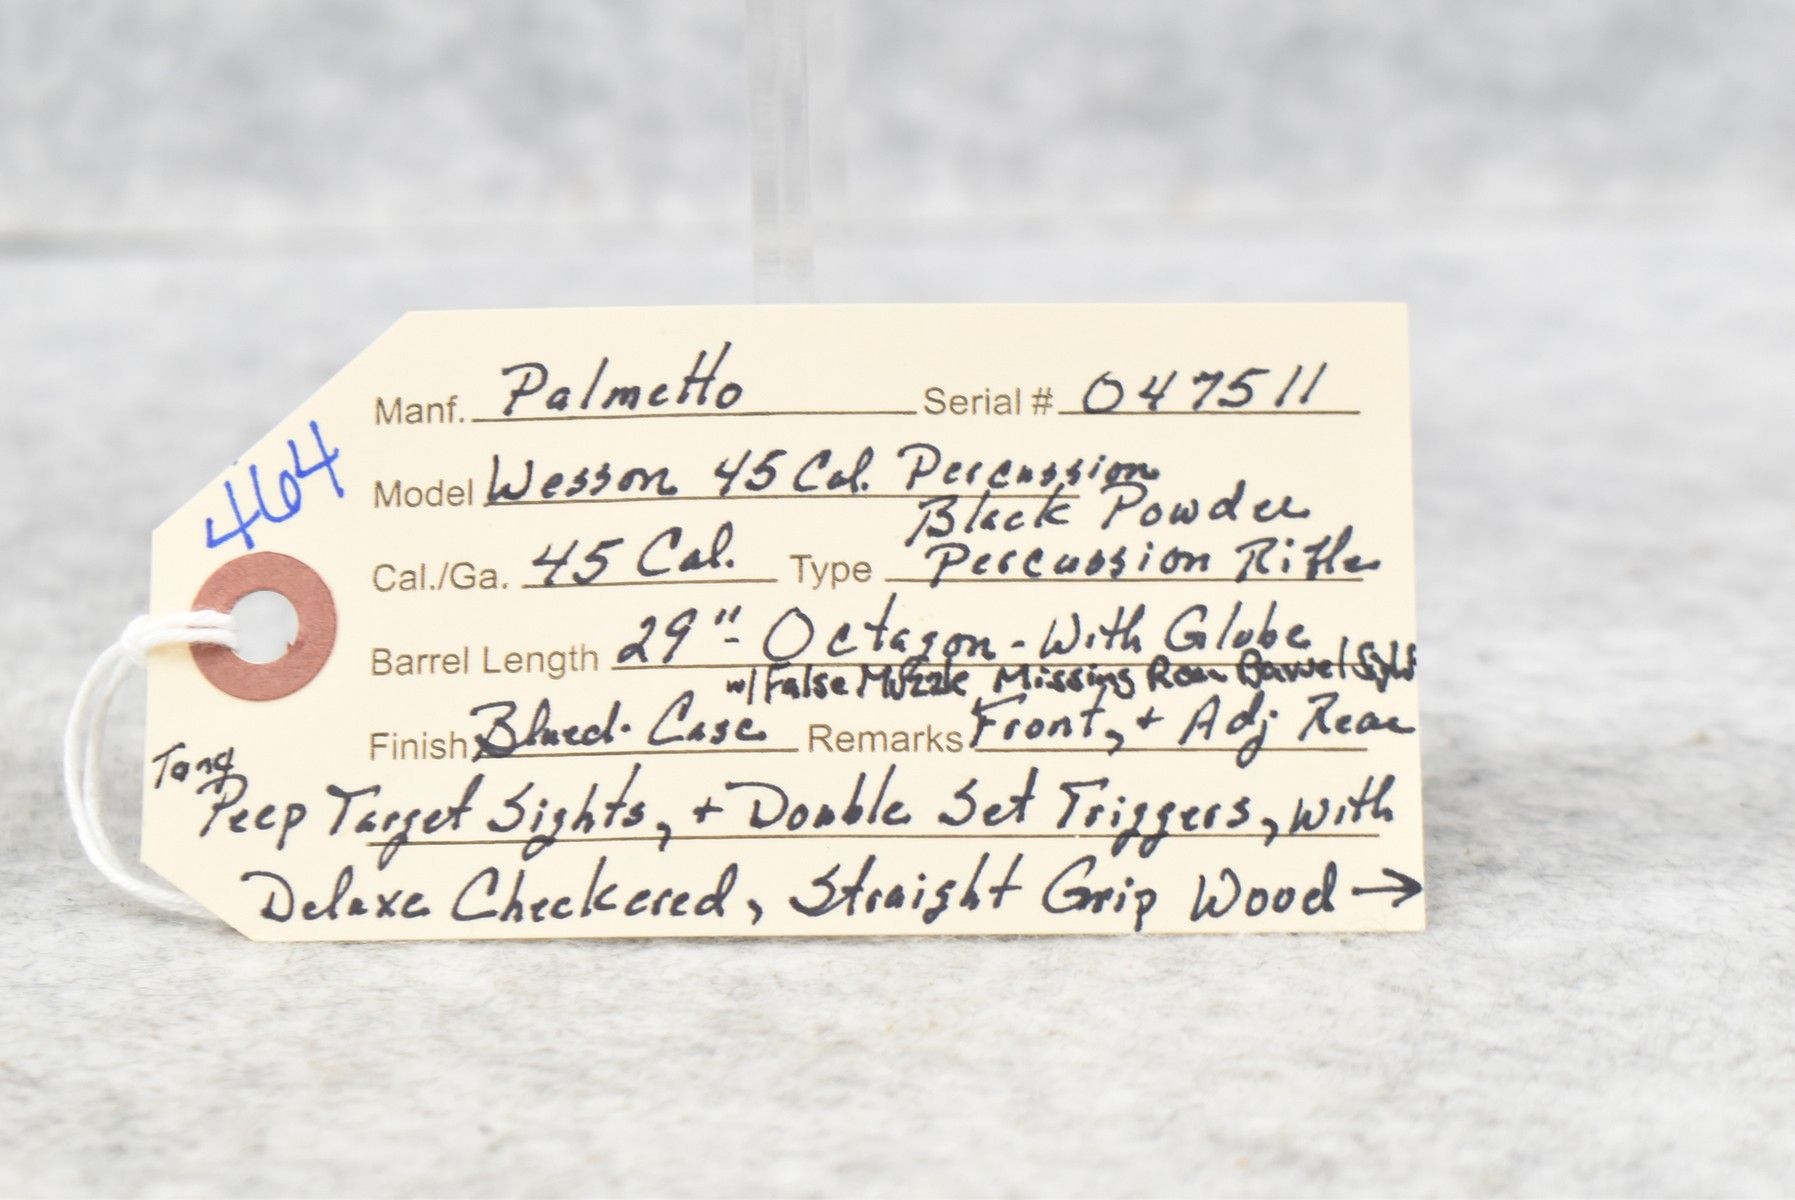 464
Manf. Palmetto Serial # 047511
Model Wesson 45 Cal. Percussion
Black Powder
Cal./Ga. 45 Cal. Type Percussion Rifle
Barrel Length 29"- Octagon - With Globe
w/ False Muzzle Missing Rear Barrel Sight
Finish Blued. Case Remarks Front, + Adj Rear
Tang
Peep Target Sights, + Double Set Triggers, with
Deluxe Checkered, Straight Grip Wood →